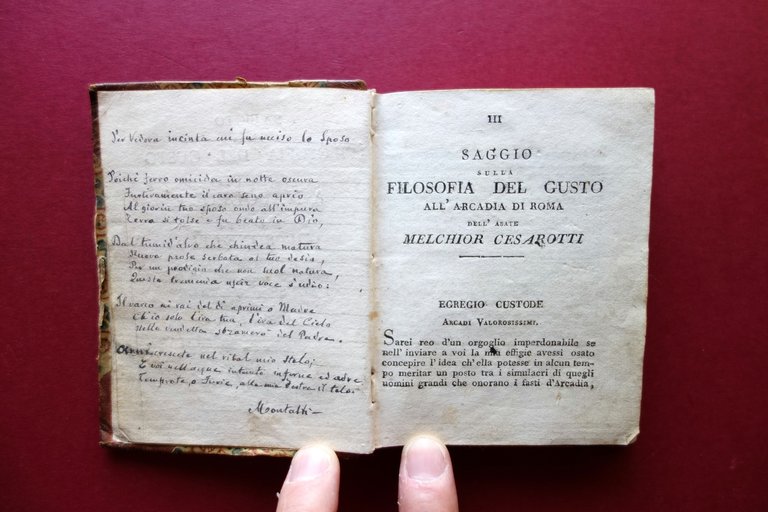 Per Vedova incinta cui fu ucciso lo Sposo
Poiché ferro omicida in notte oscura
Furtivamente il caro seno aprio
Al giovin tuo sposo onde all'impura
Terra si tolse e fu beato in Dio,
Dal tumid'alvo che chiudea matura
Nuova prole serbata al tuo desio,
Per un prodigio che non suol natura,
Questa tremenda uscir voce s'udio:
Il varco ai rai del dì aprimi o Madre
Ch'io solo l'ira tua, l'ira del Cielo
Nella vendetta sbramerò del Padre.
nel vital mio stelo;
E voi nell'acque intanto inferne ed adre
Temprate, o Furie, alla mia destra il telo.
III
SAGGIO
SULLA
FILOSOFIA DEL GUSTO
ALL'ARCADIA DI ROMA
DELL'ABATE
MELCHIOR CESAROTTI
EGREGIO CUSTODE
ARCADI VALOROSISSIMI.
Sarei reo d'un orgoglio imperdonabile se
nell'inviare a voi la mia effigie avessi osato
concepire l'idea ch'ella potesse in alcun tem-
po meritar un posto tra i simulacri di quegli
uomini grandi che onorano i fasti d'Arcadia,